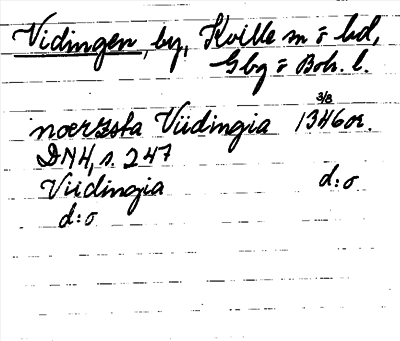 Vidingen, by, Kville sn o hd,
Gbg o Boh. l.
3/8
nœrzsta Viidingia 1346 or.
DN 4, s. 247
Viidingia d:o
d:o